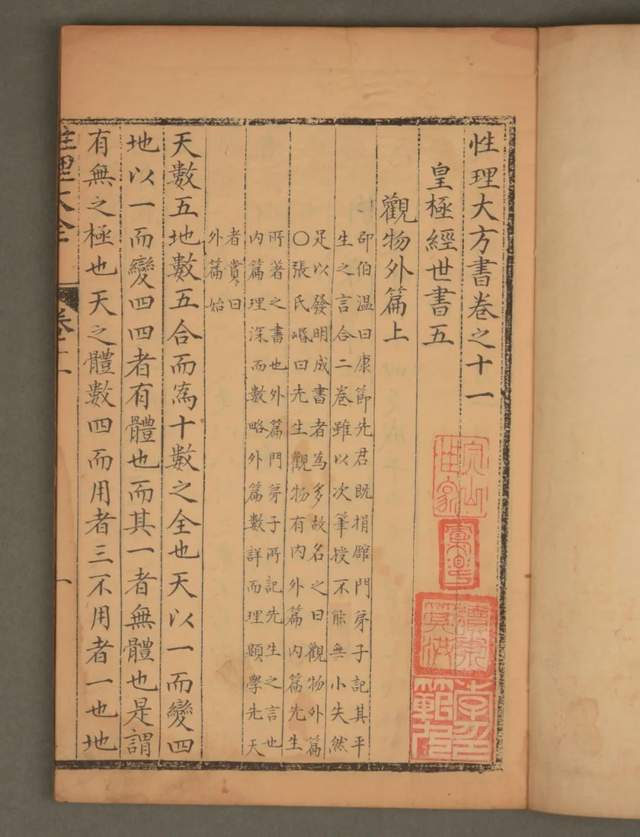 性理大方書卷之十一
皇極經世書五
觀物外篇上
邵伯溫曰康節先君既捐館門弟子記其平
生之言合二卷雖以次筆授不能無小失然
足以發明成書者為多故名之曰觀物外篇
○張氏㟭曰先生觀物有内外篇内篇先生
所著之書也外篇門弟子所記先生之言也
内篇理深而數略外篇數詳而理顯學先天
者當自
外篇始
天數五地數五合而為十數之全也天以一而變四
地以一而變四四者有體也而其一者無體也是謂
有無之極也天之體數四而用者三不用者一也地
性理大全
卷十一
一